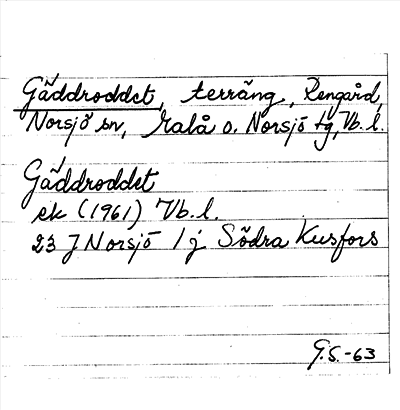 Gäddroddet, terräng, Rengård,
Norsjö sn, Malå o. Norsjö tg, Vb. l.
Gäddroddet
ek (1961) Vb. l.
23 J Norsjö 1 j Södra Kusfors
G.S.-63